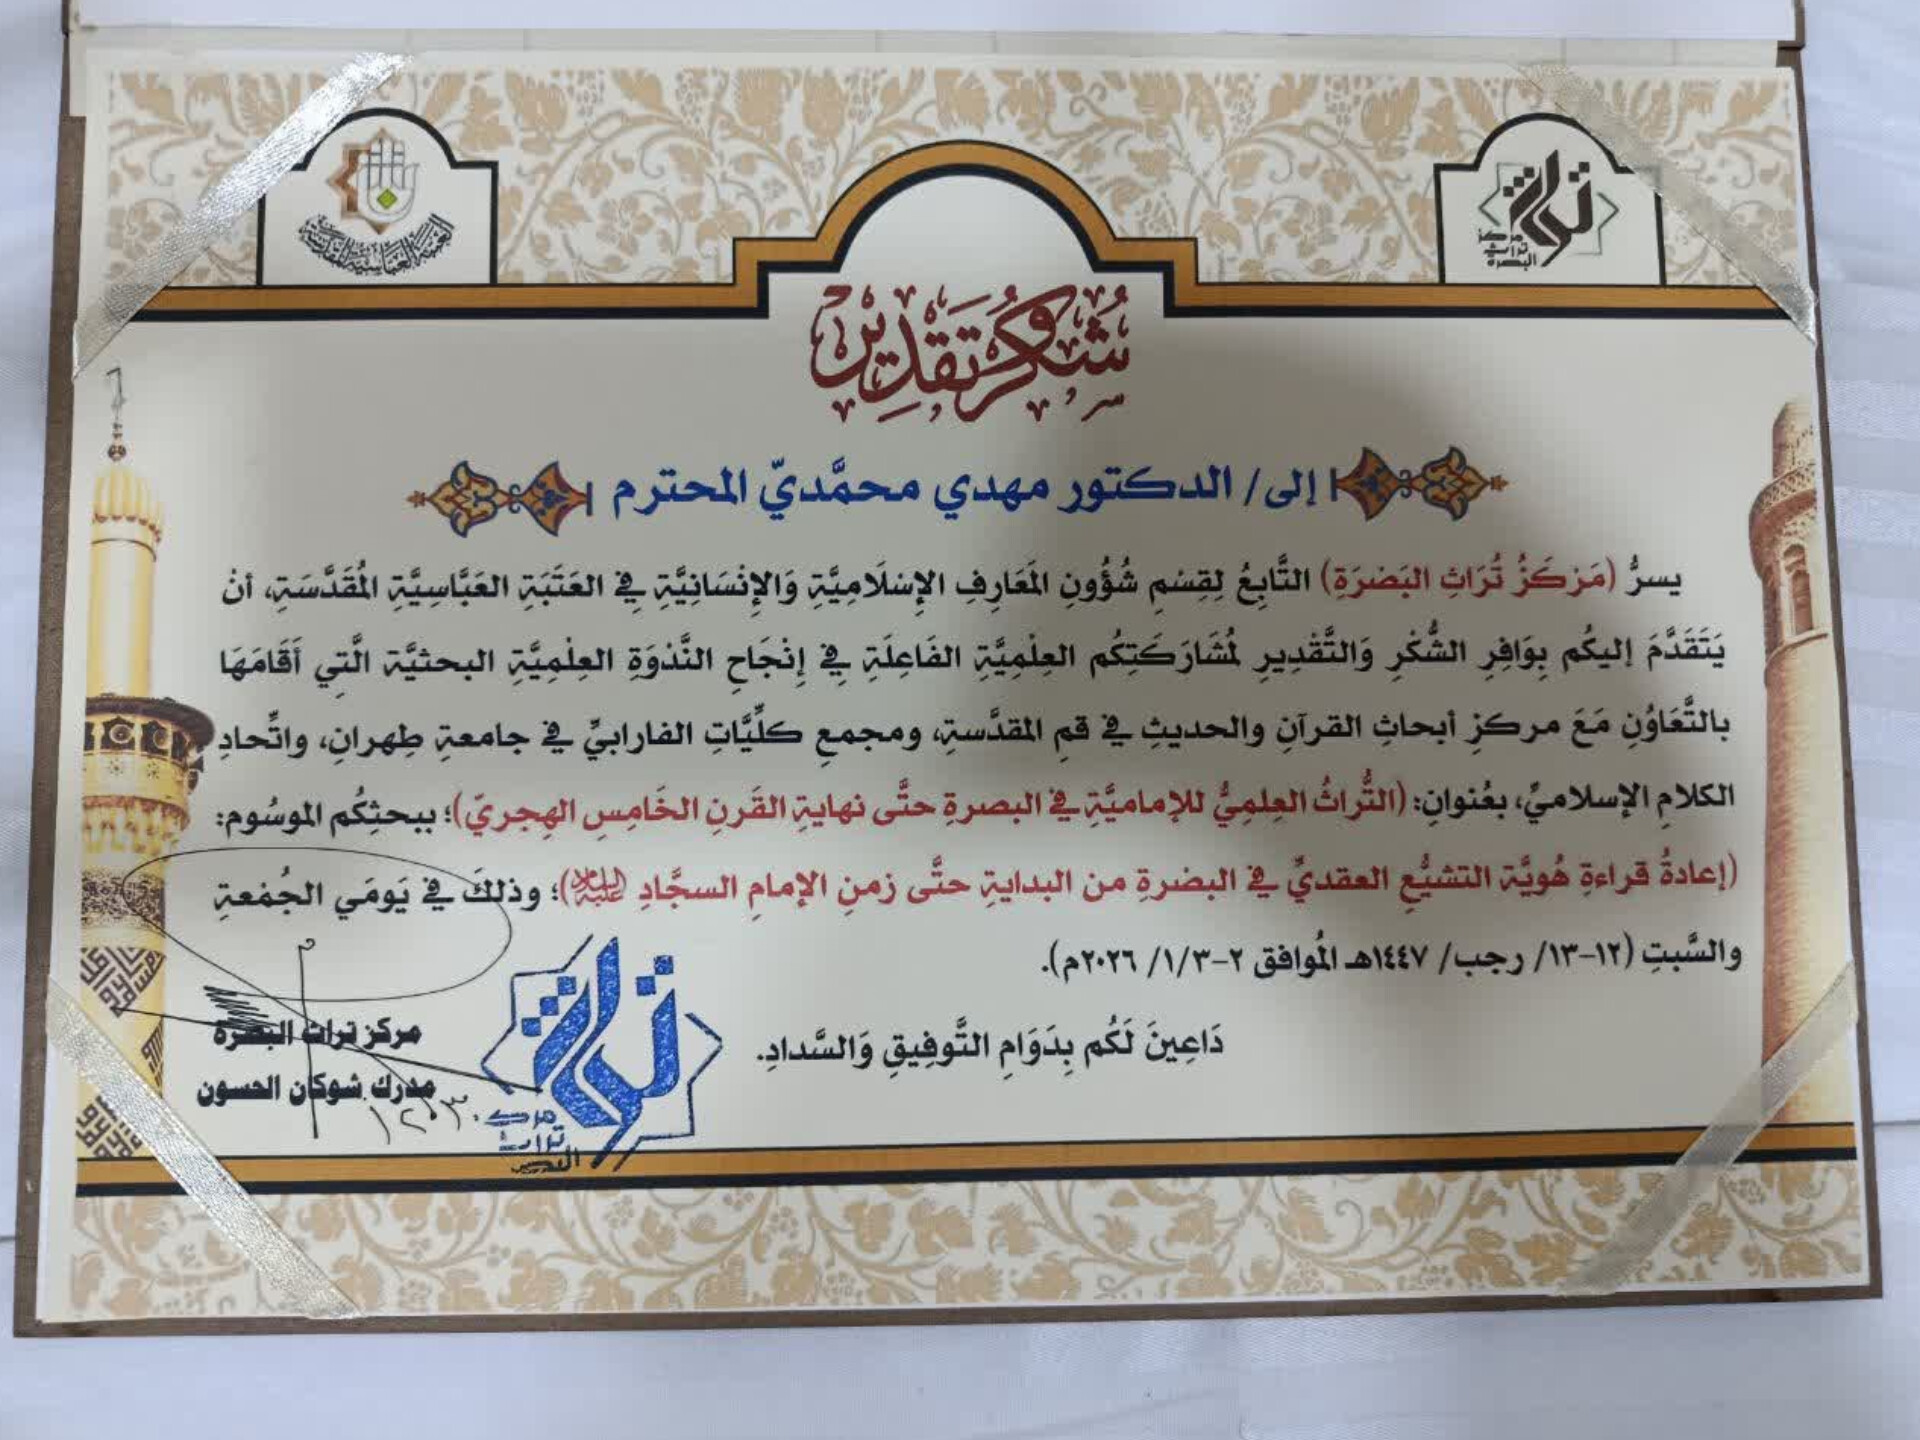 العتبة العباسية المقدسة
تراث
مركز
تراث
البصرة
شُكْرٌ وَتَقْدِيرٌ
إلى/ الدكتور مهدي محمَّديّ المحترم
يسرُّ (مَرْكَزُ تُرَاثِ البَصْرَةِ) التَّابِعُ لِقِسْمِ شُؤُونِ المَعَارِفِ الإِسْلَامِيَّةِ وَالإِنْسَانِيَّةِ فِي العَتَبَةِ العَبَّاسِيَّةِ المُقَدَّسَةِ، أنْ
يَتَقَدَّمَ إليكُم بِوَافِرِ الشُّكْرِ وَالتَّقْدِيرِ لمُشَارَكَتِكُم العِلْمِيَّةِ الفَاعِلَةِ فِي إِنْجَاحِ النَّدْوَةِ العِلْمِيَّةِ البحثيَّة الَّتِي أَقَامَهَا
بالتَّعَاوُنِ مَعَ مركزِ أبحاثِ القرآنِ والحديثِ في قمِ المقدَّسةِ، ومجمعِ كلِّيَّاتِ الفارابيِّ في جامعةِ طِهرانِ، واتِّحادِ
الكلامِ الإسلاميِّ، بعُنوانِ: (التُّراثُ العِلمِيُّ للإماميَّةِ في البصرةِ حتَّى نهايةِ القَرنِ الخَامِسِ الهِجريّ)؛ ببحثِكُم الموسُوم:
(إعادةُ قراءةِ هُويَّة التشيُّعِ العقديِّ في البصْرةِ من البدايةِ حتَّى زمنِ الإمامِ السجَّادِ عليه السلام)؛ وذلكَ في يَومَي الجُمْعةِ
والسَّبتِ (١٢-١٣/ رجب/ ١٤٤٧هـ المُوافق ٢-١/٣/ ٢٠٢٦م).
دَاعِينَ لَكُم بِدَوَامِ التَّوفِيقِ وَالسَّدادِ.
مركز تراث البصرة
مدرك شوكان الحسون
تراث
مركز
تراث
البصرة